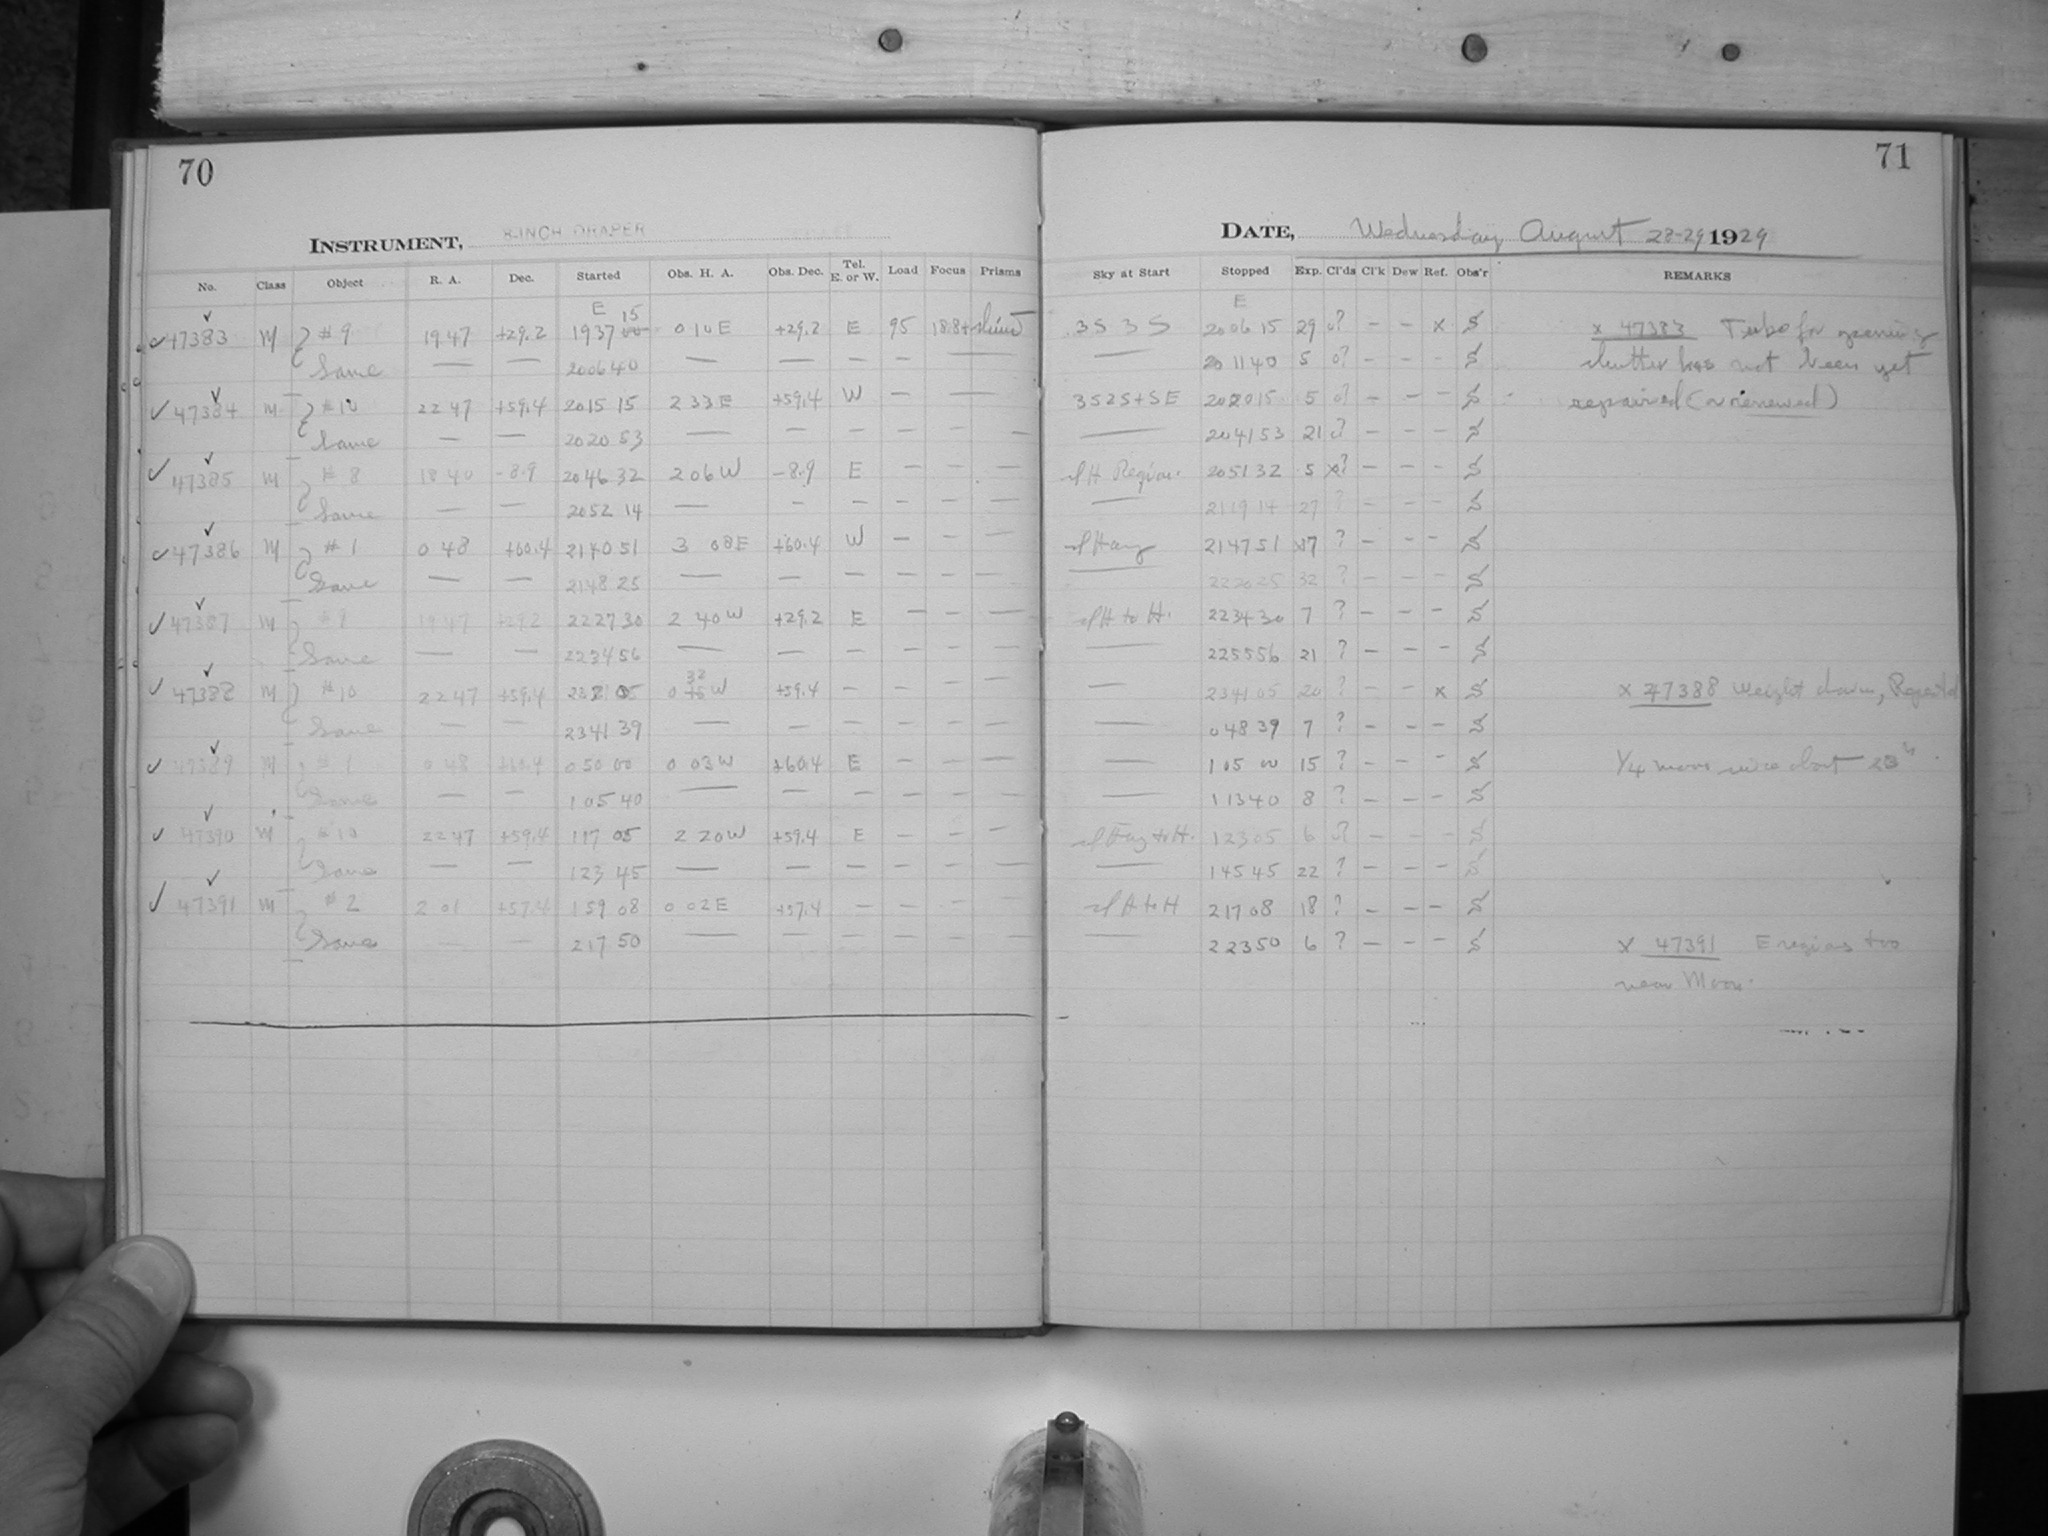 70
INSTRUMENT, 8-INCH DRAPER
No. Class Object R. A. Dec. Started Obs. H. A. Obs. Dec. Tel. E. or W. Load Focus Prisms
E 15
47383 M #9 19 47 +29.2 19 37 00 0 10 E +29.2 E 95 18.8+
Same — — 20 06 40 — — — — —
47384 M #10 22 47 +59.4 20 15 15 2 33 E +59.4 W — — —
Same — — 20 20 53 — — — — — —
47385 M #8 18 40 -8.9 20 46 32 2 06 W -8.9 E — — —
Same — — 20 52 14 — — — — — —
47386 M #1 0 48 +60.4 21 40 51 3 08 E +60.4 W — — —
Same — — 21 48 25 — — — — — —
47387 M #9 19 47 +29.2 22 27 30 2 40 W +29.2 E — — —
Same — — 22 34 56 — — — — — —
32
47388 M #10 22 47 +59.4 23 05 0 W +59.4 — — — —
Same — — 23 41 39 — — — — — —
47389 M #1 0 48 +60.4 0 50 00 0 03 W +60.4 E — — —
Same — — 1 05 40 — — — — — —
47390 M #10 22 47 +59.4 1 17 05 2 20 W +59.4 E — — —
Same — — 1 23 45 — — — — — —
47391 M #2 2 01 +57.4 1 59 08 0 02 E +57.4 — — — —
Same — — 2 17 50 — — — — — —
71
DATE, Wednesday August 28-29 1929
Sky at Start Stopped Exp. Cl'ds Cl'k Dew Ref. Obs'r REMARKS
E
3S 3S 20 06 15 29 0? — — x S x 47383 Tube for opening
— 20 11 40 5 0? — — — S shutter has not been yet
3S2S+SE 20 20 15 5 0? — — — S repaired (or renewed)
— 20 41 53 21 0? — — — S
H Region. 20 51 32 5 x? — — — S
— 21 19 14 27 ? — — — S
21 47 51 7 ? — — — S
— 22 20 25 32 ? — — — S
H to H. 22 34 30 7 ? — — — S
— 22 55 56 21 ? — — — S
— 23 41 05 20 ? — — x S x 47388 Weight down, Repeated
— 0 48 39 7 ? — — — S
— 1 05 00 15 ? — — — S 1/4 moon rise about 23h
— 1 13 40 8 ? — — — S
to H. 1 23 05 6 0? — — — S
— 1 45 45 22 ? — — — S
H to H 2 17 08 18 ? — — — S
— 2 23 50 6 ? — — — S x 47391 E regions too
near Moon.